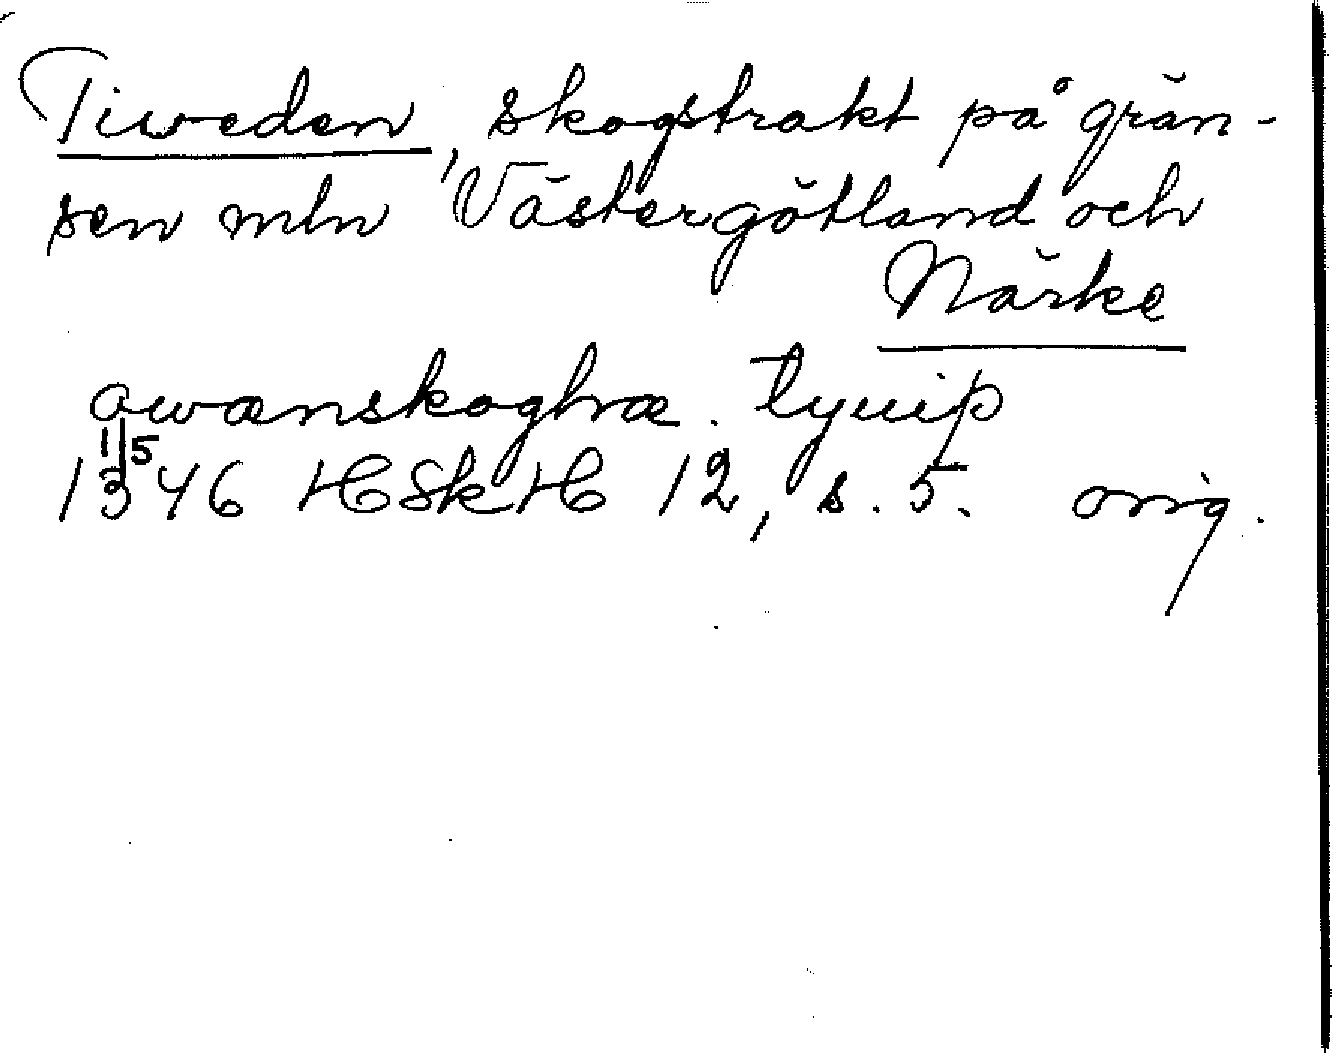 Tiweden, skogstrakt på grän-
sen mln Västergötland och
Närke
owænskoghræ. tyuiþ
1/5
1346 HSkH 12, s. 5. orig.